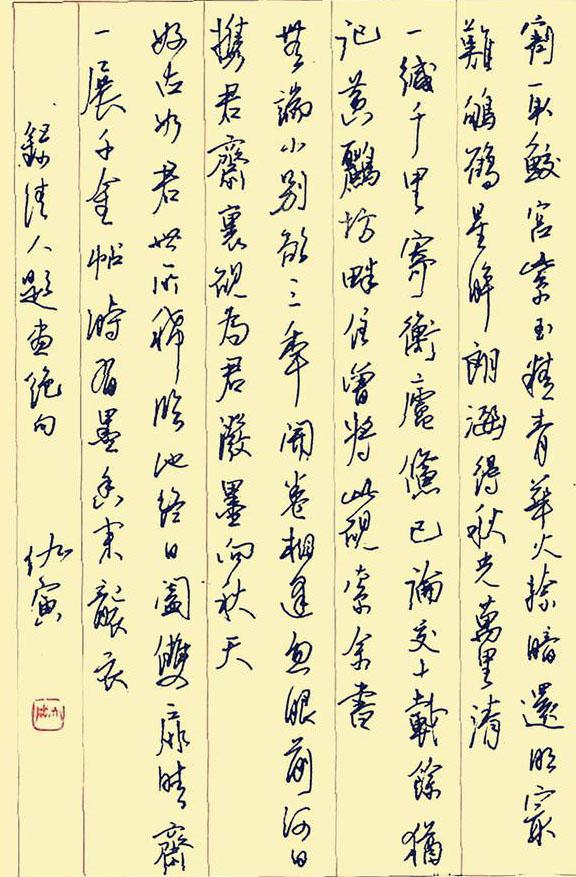 取鮫宮紫玉精青華火捺暗還明最
難鴝鵒星眸朗涵得秋光萬里清
一緘千里寄衡廬論交十載餘猶
記黃鸝坊畔住曾將此硯索余書
無端小別欲三年開卷相逢忽眼前何日
攜君齋裏硯為君潑墨向秋天
好古如君世所稀臨池終日闔雙扉晴齋
一展千金帖時有墨香來襲衣
錄清人題畫絕句 伽寅